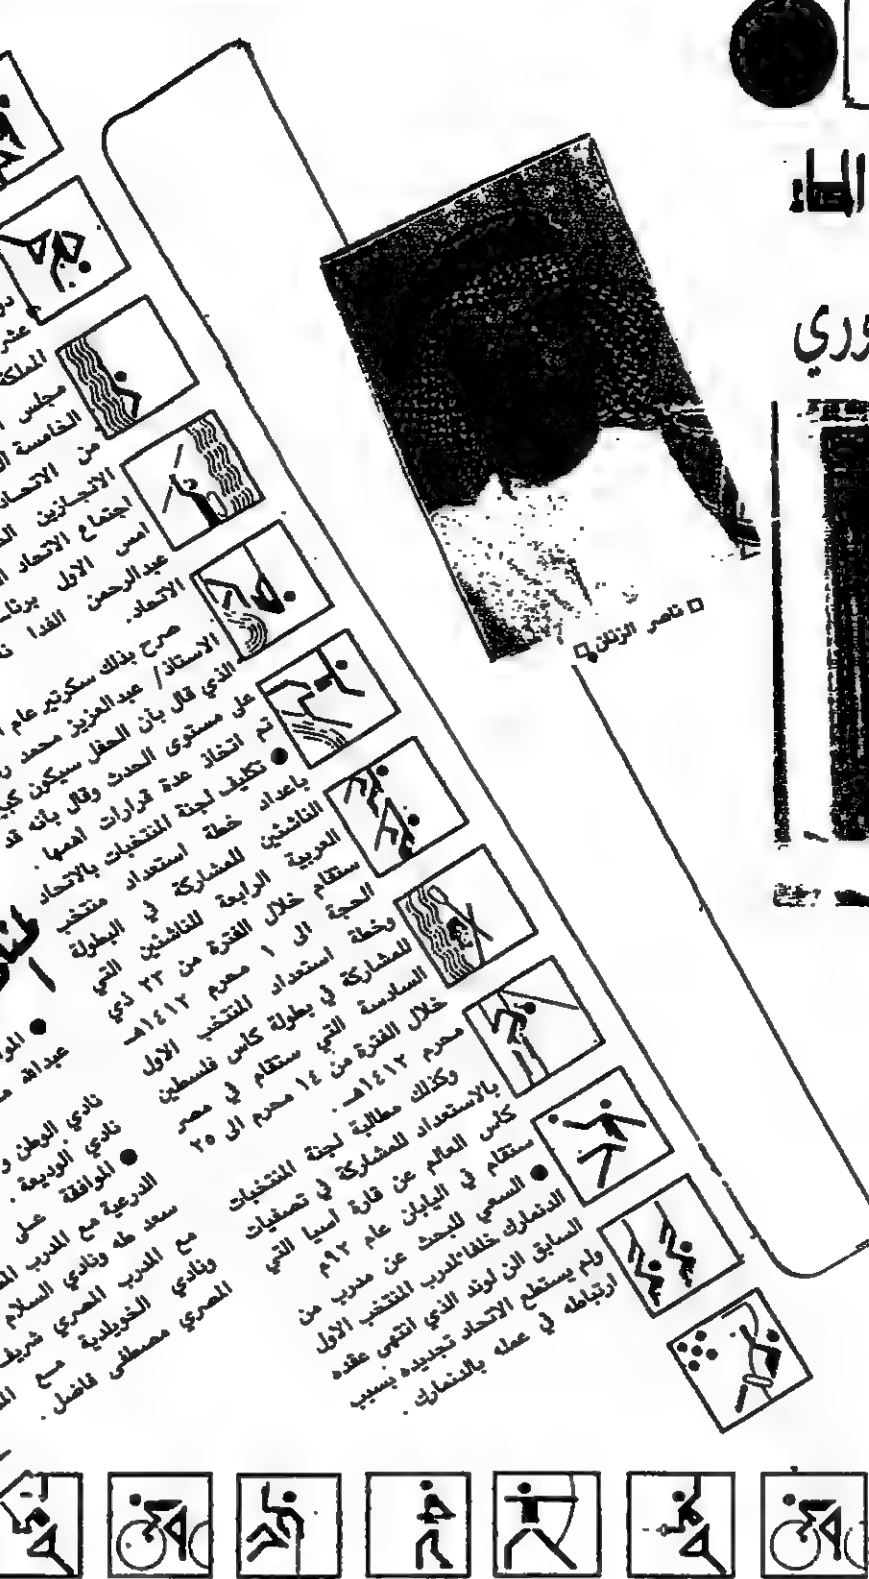 وري
□ ناصر الزنان □
عشر
المملكة
مجلس
الخامسة
من الاتحاد
الانجازين
اجتماع الاتحاد
امس الاول
عبدالرحمن الفدا
الاتحاد.
صرح بذلك سكرتير عام
الاستاذ/ عبدالعزيز محمد
الذي قال بأن الحفل سيكون
على مستوى الحدث وقال بأنه قد
تم اتخاذ عدة قرارات أهمها.
● تكليف لجنة المنتخبات بالاتحاد
باعداد خطة استعداد منتخب
الناشئين للمشاركة في البطولة
العربية الرابعة للناشئين التي
ستقام خلال الفترة من ٢٣ ذي
الحجة الى ١ محرم ١٤١٢هـ
وخطة استعداد المنتخب الاول
للمشاركة في بطولة كأس فلسطين
السادسة التي ستقام في مصر
خلال الفترة من ١٤ محرم الى ٢٥
محرم ١٤١٢هـ.
وكذلك مطالبة لجنة المنتخبات
بالاستعداد للمشاركة في تصفيات
كأس العالم عن قارة آسيا التي
ستقام في اليابان عام ٩٢م
● السعي للبحث عن مدرب من
الدنمارك خلفاً لمدرب المنتخب الاول
السابق الن لوند الذي انتهى عقده
ولم يستطع الاتحاد تجديده بسبب
ارتباطه في عمله بالدنمارك.
عبدالله
نادي الوطن
نادي الوديعة.
● الموافقة على
الدرعية مع المدرب
سعد طه ونادي السلام
مع المدرب المصري شريف
ونادي الخويلدية مع
المصري مصطفى فاضل.